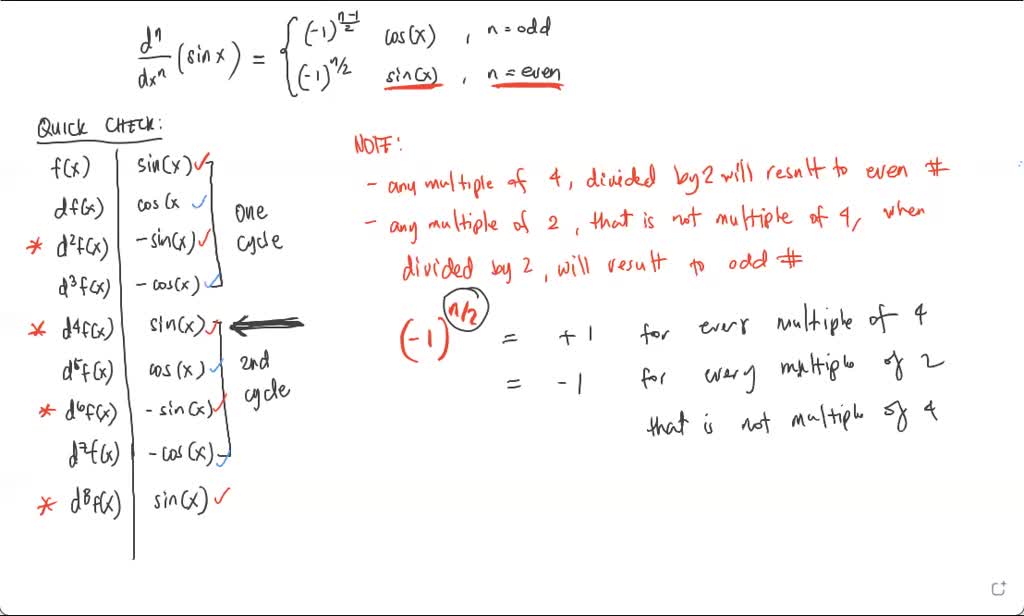 dⁿ/dxⁿ (sin x) = { (-1)^((n-1)/2) cos(x) , n = odd
(-1)^(n/2) sin(x) , n = even
QUICK CHECK:
f(x) | sin(x) ✓
df(x) | cos(x ✓
* d²f(x) | -sin(x) ✓
d³f(x) | -cos(x) ✓
one
cycle
* d⁴f(x) | sin(x) ✓
d⁵f(x) | cos(x) ✓
* d⁶f(x) | -sin(x) ✓
d⁷f(x) | -cos(x) ✓
2nd
cycle
* d⁸f(x) | sin(x) ✓
NOTE:
- any multiple of 4, divided by 2 will result to even #
- any multiple of 2, that is not multiple of 4, when
divided by 2, will result to odd #
(-1)^(n/2) = +1 for every multiple of 4
= -1 for every multiple of 2
that is not multiple of 4